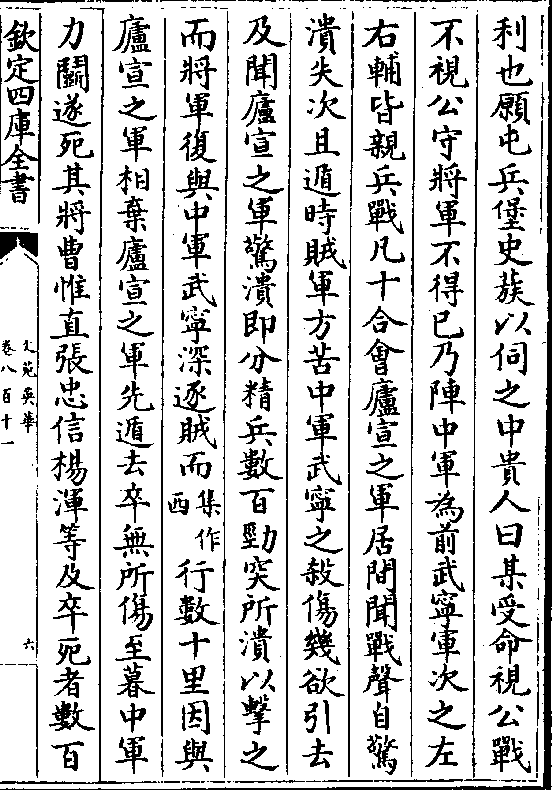 利也願屯兵堡史蔟以伺之中貴人曰某受命視公戰
不視公守將軍不得已乃陣中軍為前武寧軍次之左
右輔皆親兵戰凡十合會廬宣之軍居間聞戰聲自驚
潰失次且遁時賊軍方苦中軍武寧之殺傷幾欲引去
及聞廬宣之軍驚潰即分精兵數百勁突所潰以擊之
而將軍復與中軍武寧深逐賊而集作西行數十里因與
廬宣之軍相棄廬宣之軍先遁去卒無所傷至暮中軍
力鬭遂死其將曹惟直張忠信楊渾等及卒死者數百
欽定四庫全書
文苑英華
卷八百十一
六